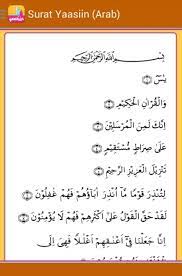 Surat Yaasiin (Arab)
بِسْمِ اللَّهِ الرَّحْمَٰنِ الرَّحِيمِ
يسٓ ﴿١﴾
وَالْقُرْآنِ الْحَكِيْمِ ﴿٢﴾
اِنَّكَ لَمِنَ الْمُرْسَلِيْنَ ﴿٣﴾
عَلٰى صِرَاطٍ مُّسْتَقِيْمٍ ﴿٤﴾
تَنْزِيْلَ الْعَزِيْزِ الرَّحِيْمِ ﴿٥﴾
لِتُنْذِرَ قَوْمًا مَّآ اُنْذِرَ اٰبَآؤُهُمْ فَهُمْ غٰفِلُوْنَ ﴿٦﴾
لَقَدْ حَقَّ الْقَوْلُ عَلٰٓى اَكْثَرِهِمْ فَهُمْ لَا يُؤْمِنُوْنَ ﴿٧﴾
اِنَّا جَعَلْنَا فِيْٓ اَعْنَاقِهِمْ اَغْلٰلًا فَهِيَ اِلَى